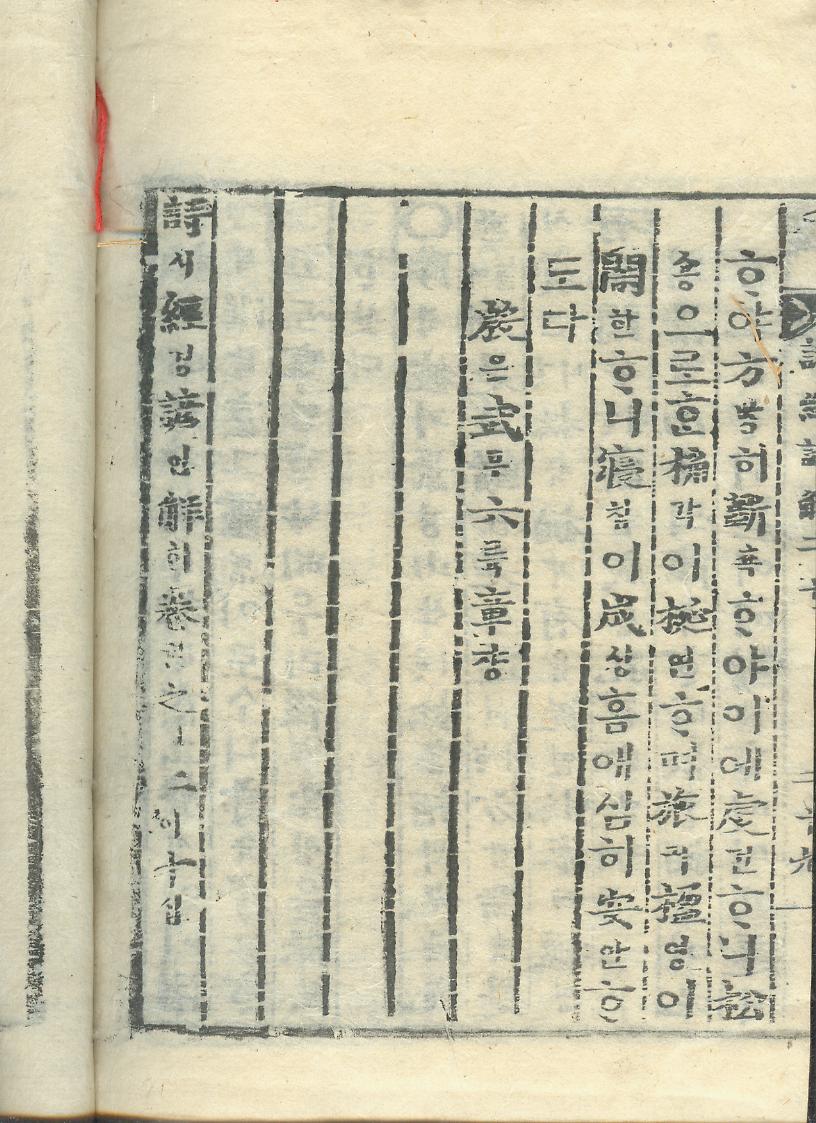 詩經諺解二十
ᄒᆞ야方방히斲쵹ᄒᆞ야이에虔건ᄒᆞ니松
숑으로ᄒᆞᆫ桷각이梴연ᄒᆞ며旅려楹영이
閑한ᄒᆞ니寢침이成셩홈애심히安안ᄒᆞ
도다
殷은武무六륙章쟝
詩시經경諺언解ᄒᆡ卷권之지二이十십